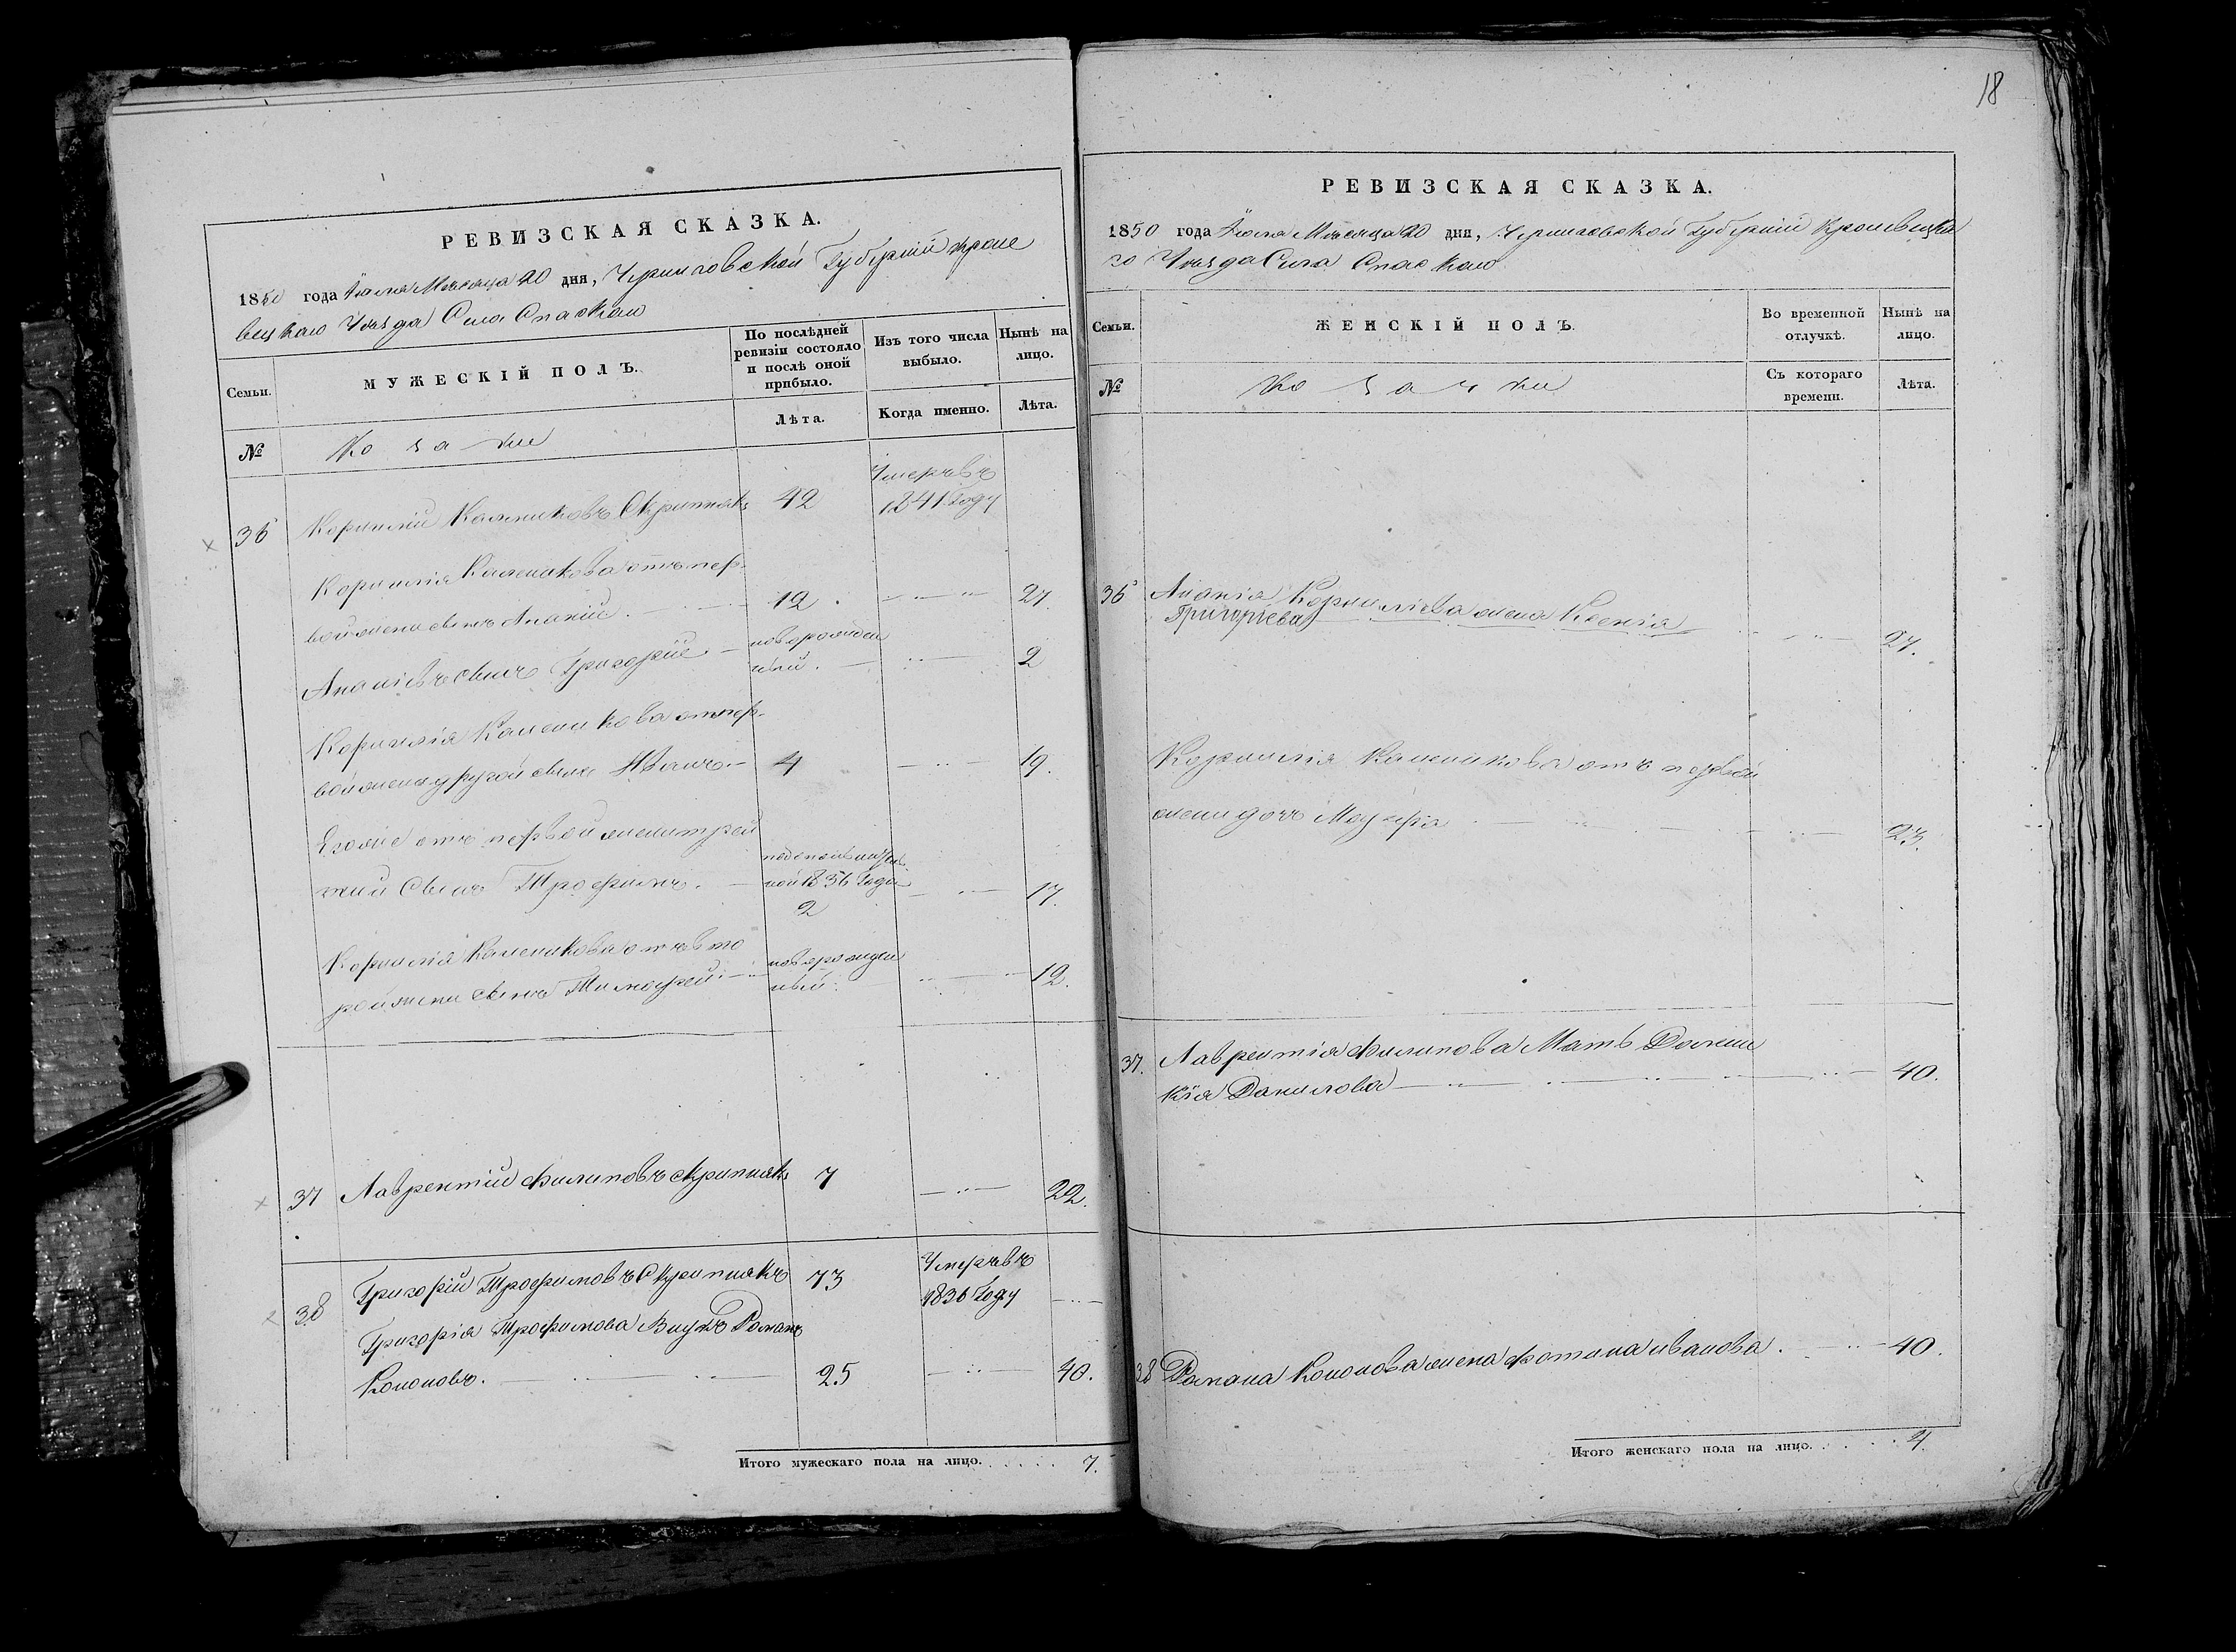 РЕВИЗСКАЯ СКАЗКА.
1850 года Іюля Месяца 20 дня, Черниговской Губерніи Кроле
вецкаго Уезда Села Спаскаго
Семьи.
МУЖЕСКІЙ ПОЛЪ.
По послѣдней ревизіи состояло и послѣ оной прибыло.
Изъ того числа выбыло.
Нынѣ на лицо.
Лѣта.
Когда именно.
Лѣта.
№
Козаки
36 Корнилий Калениковъ Скрипнякъ 42 Умеръ въ
1841 году
Корнилія Каленикова отъ пер-
вой жены сынъ Ананій. 12 27.
Ананіевъ сынъ Григорій новорожден
ный. 2
Корнилія Каленикова от пер-
вой жены другой сынъ Иванъ 4 19.
Егоже отъ первой жены трей
тий Сынъ Трофимъ.
1836 Года 17.
2
Корнилія Каленикова отъ вто
рой жены сынъ Тимофей новорожден
ный. 12.
37 Лаврентий Филиповъ Скрипнякъ 7 22.
38 Григорій Трофимовъ Скрипнякъ 73 Умеръ въ
1836 Году
Григорія Трофимова Внукъ Романъ
Кононовъ. 25 40.
Итого мужескаго пола на лицо. 7.
18
РЕВИЗСКАЯ СКАЗКА.
1850 года Іюля Месяца 20 дня, Черниговской Губерніи Кролевецка
го Уезда Села Спаскаго
Семьи.
ЖЕНСКІЙ ПОЛЪ.
Во временной отлучкѣ.
Нынѣ на лицо.
№
Козачки
Съ котораго времени.
Лѣта.
36 Ананія Корнилієва жена Ксенія
Григорієва 27.
Корнилія Каленикова отъ первой
жены дочь Мауфра 23.
37. Лаврентія Филипова Мать Домни
кія Данилова 40.
38 Романа Кононова жена Фотина иванова. 40.
Итого женскаго пола на лицо. 4.